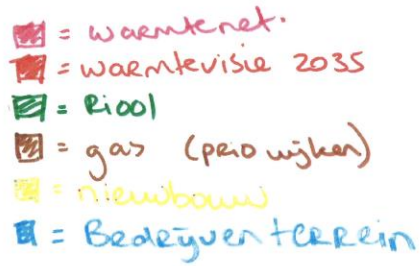 = warmtenet.
= warmtevisie 2035
= Riool
= gas (prio wijken)
= nieuwbouw
= Bedrijven terrein